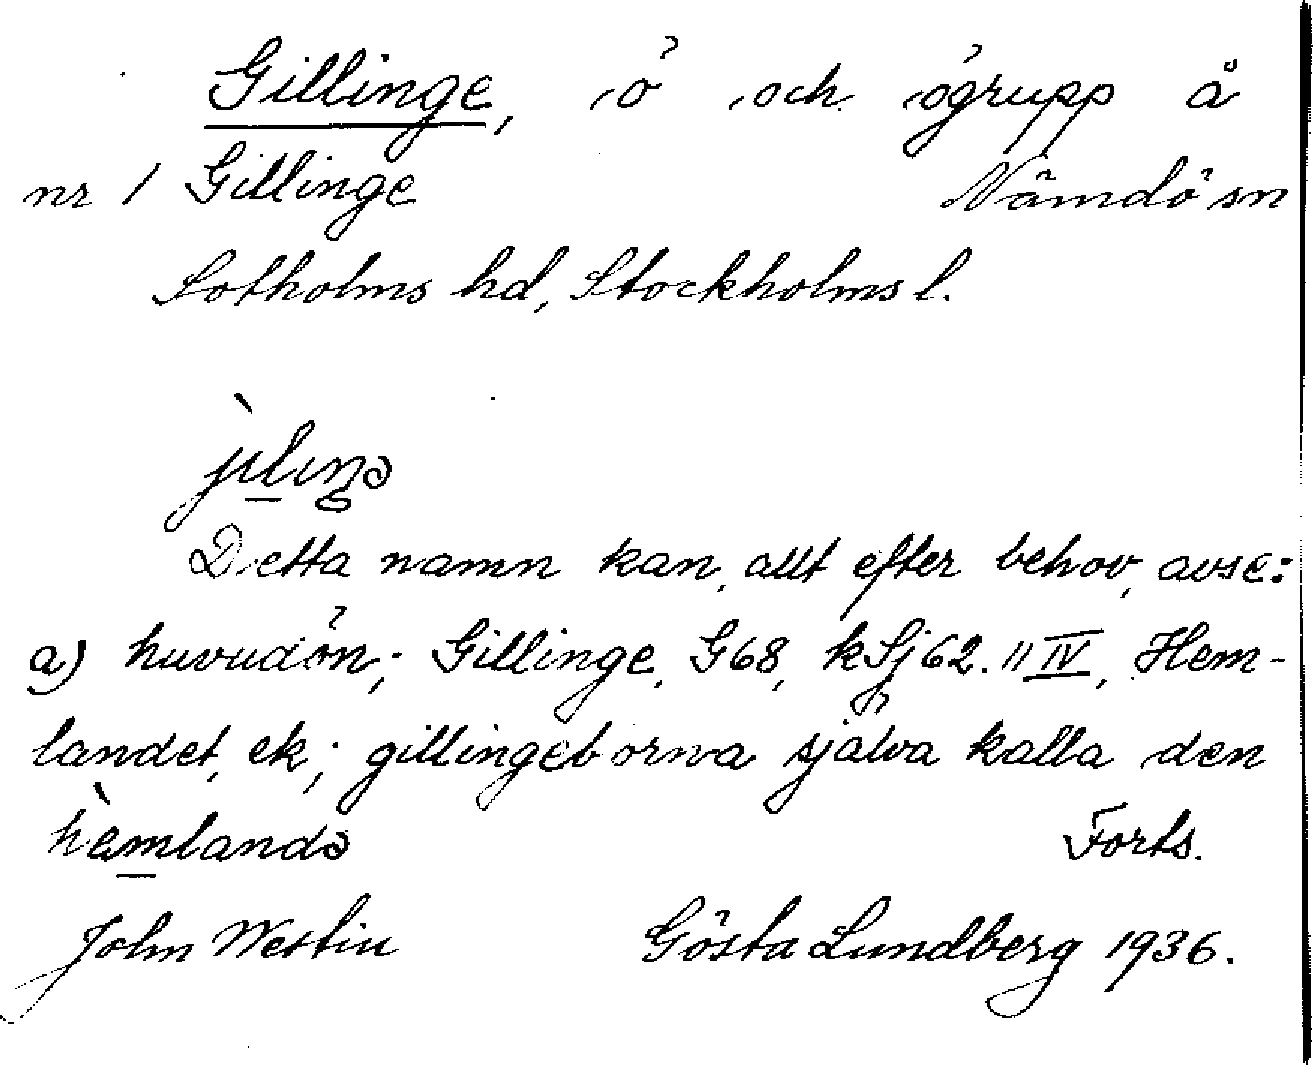 Gillinge, ö och ögrupp å
nr 1 Gillinge Nämdö sn
Sotholms hd, Stockholms l.
jìlıŋə
Detta namn kan, allt efter behov, avse:
a) huvudön; Gillinge, G68, kSj62. II IV, Hem-
landet, ek; gillingeborna själva kalla den
hæ̀mlandə Forts.
John Westin Gösta Lundberg 1936.